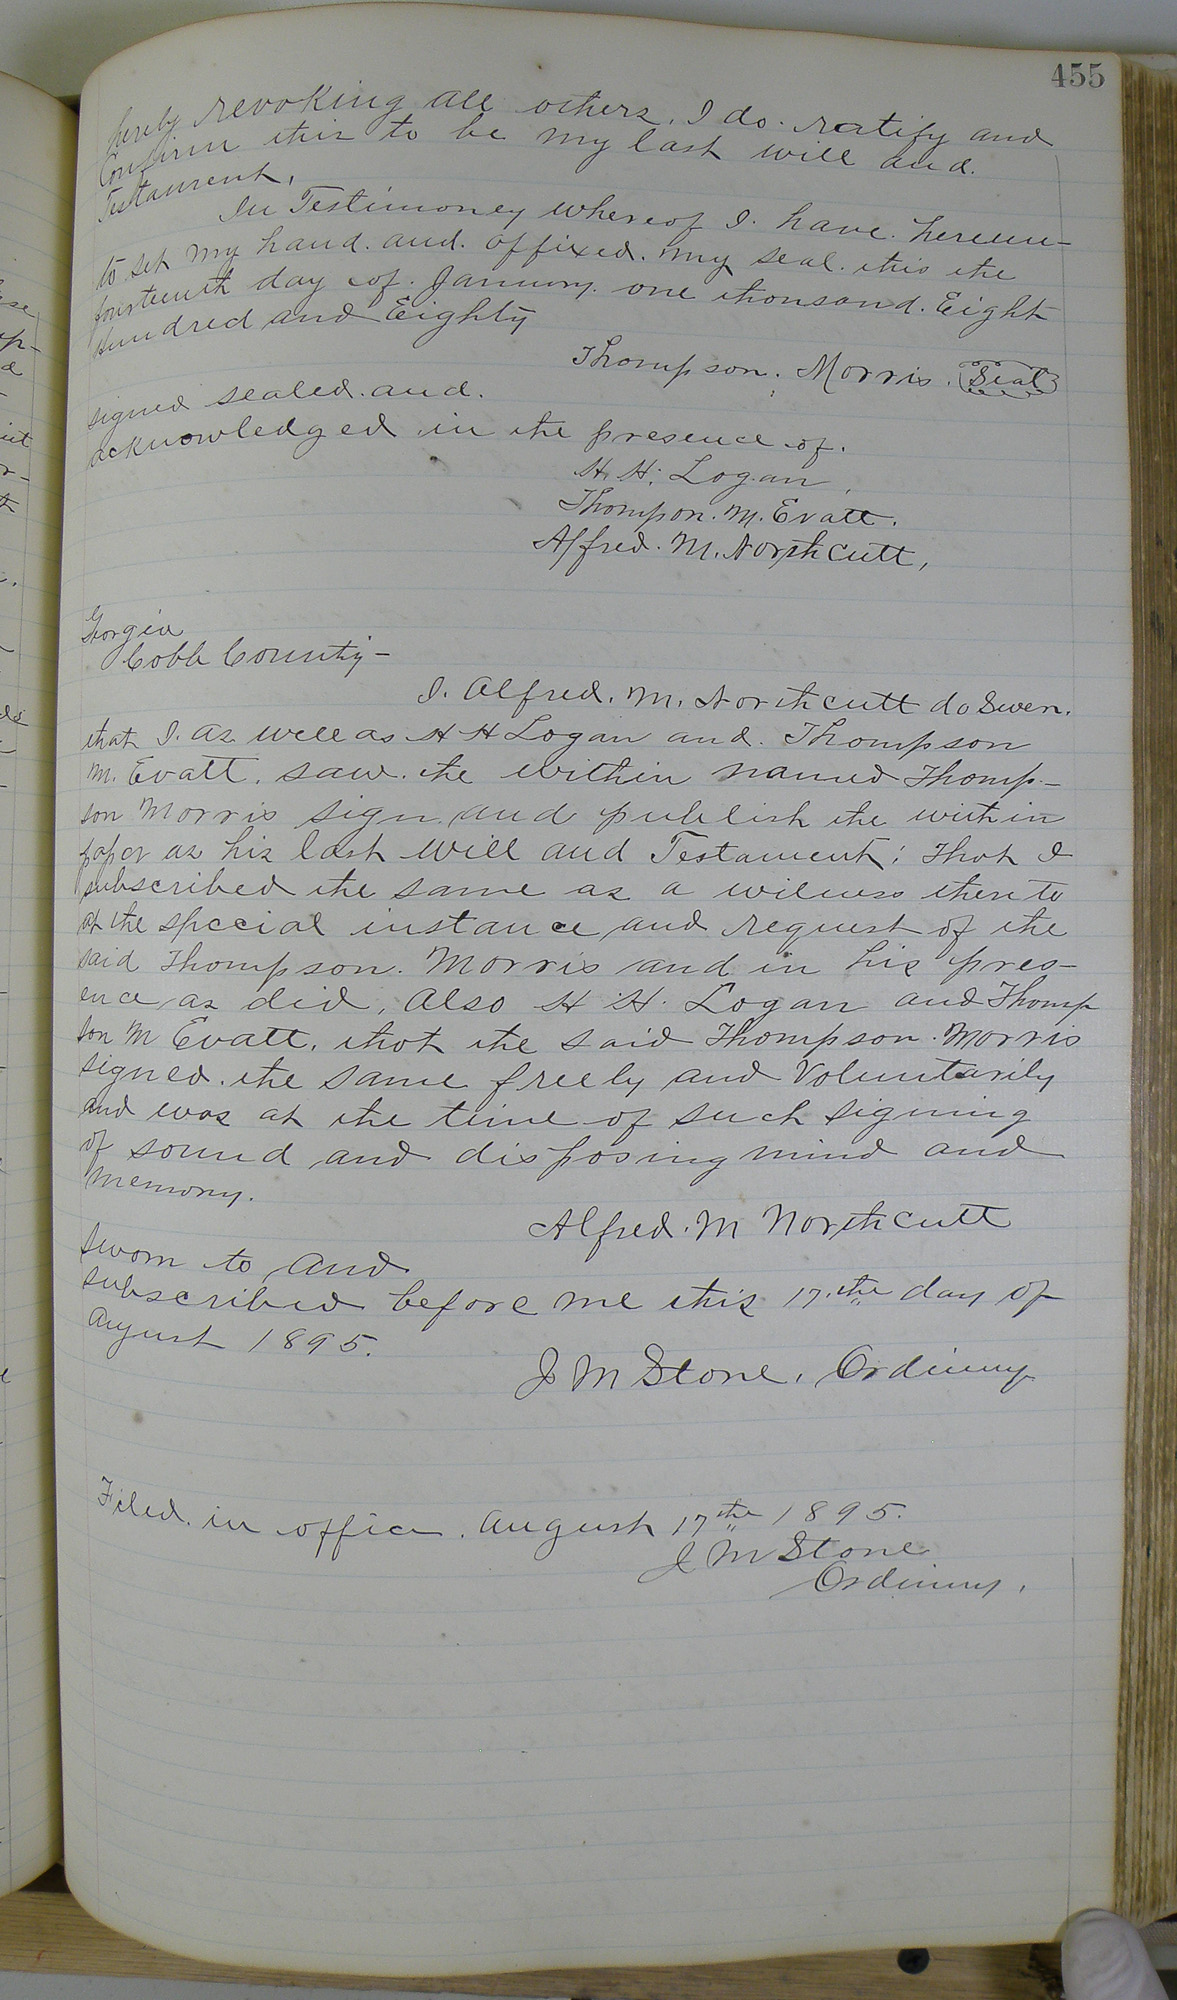 455
hereby revoking all others. I do. ratify and
Confirm this to be my last will and.
Testament.
In Testimoney whereof I. have. hereun-
to set my hand. and. affixed. my seal. this the
fourteenth day of. January. one thousand. Eight
Hundred and Eighty
Thompson. Morris. (Seal)
signed sealed. and.
acknowledged in the presence of.
H. H. Logan,
Thompson. M. Evatt.
Alfred. M. Northcutt,
Georgia
Cobb County-
I. Alfred. M. Northcutt do Swer.
that I. as well as H H Logan and. Thompson
M. Evatt. saw. the within named Thomp-
son Morris sign and publish the within
paper as his last will and Testament; That I
subscribed the same as a witness thereto
at the special instance and request of the
said Thompson. Morris and in his pres-
ence as did, also H H. Logan and Thomp
son M Evatt, that the said Thompson. Morris
signed. the same freely and Voluntarily
and was at the time of such signing
of sound and disposing mind and
memory.
Alfred. M Northcutt
Sworn to and
subscribed before me this 17.th day of
August 1895.
J M Stone, Ordinary
Filed. in office. August 17th 1895.
J M Stone
Ordinary,